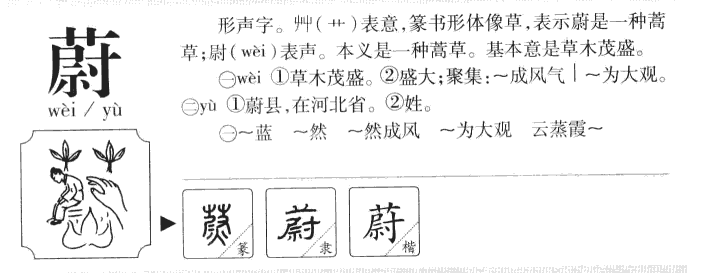 蔚
wèi / yù
形声字。艸(艹)表意,篆书形体像草,表示蔚是一种蒿
草;尉(wèi)表声。本义是一种蒿草。基本意是草木茂盛。
㊀wèi ①草木茂盛。②盛大;聚集:~成风气│~为大观。
㊁yù ①蔚县,在河北省。②姓。
㊀~蓝 ~然 ~然成风 ~为大观 云蒸霞~
蔚 篆 蔚 隶 蔚 楷